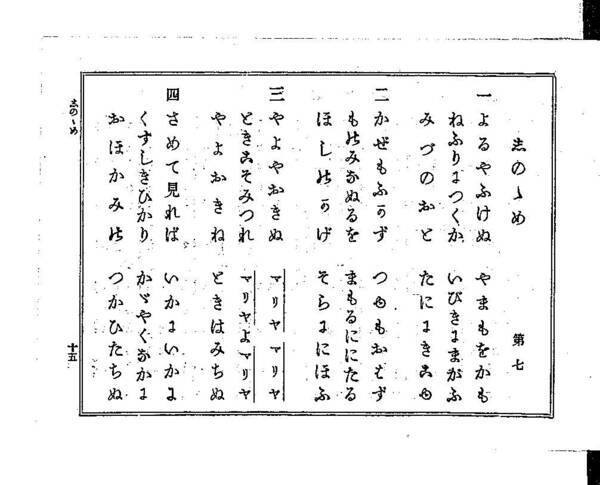 しのゝめ
第七
一 よるやふけぬ やまもをかも
ねふりにつくか いびきにまがふ
みづのおと たににきこゆ
二 かぜもふかず つゆもおとず
ものみなぬるを まもるににたる
ほしのかげ そらににほふ
三 やよやおきぬ マリヤ マリヤ
ときこそみつれ マリヤよマリヤ
やよおきね ときはみちぬ
四 さめて見れば いかにいかに
くすしきひかり かゞやくなかに
おほかみの つかひたちぬ
しのゝめ
十五